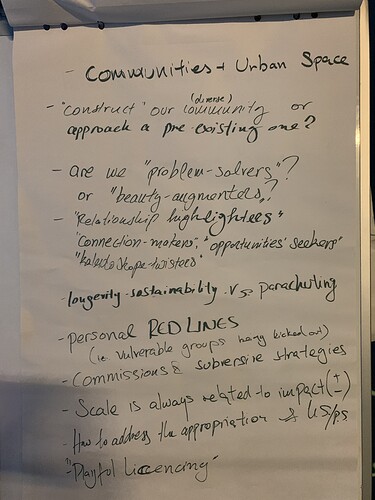 - Communities + Urban Space
- "construct" our (diverse) community or
approach a pre-existing one?
- are we "problem-solvers"?
or "beauty-augmenters"?
- "Relationship highlighters"
"connection-makers", "opportunities' seekers"
"kaleidoscope-twisters"
- longevity-sustainability vs. parachuting
- personal RED LINES
(i.e. vulnerable groups being kicked out)
- Commissions & subversive strategies
- Scale is always related to impact (+/-)
- How to address the appropriation of
- "Playful Licencing"